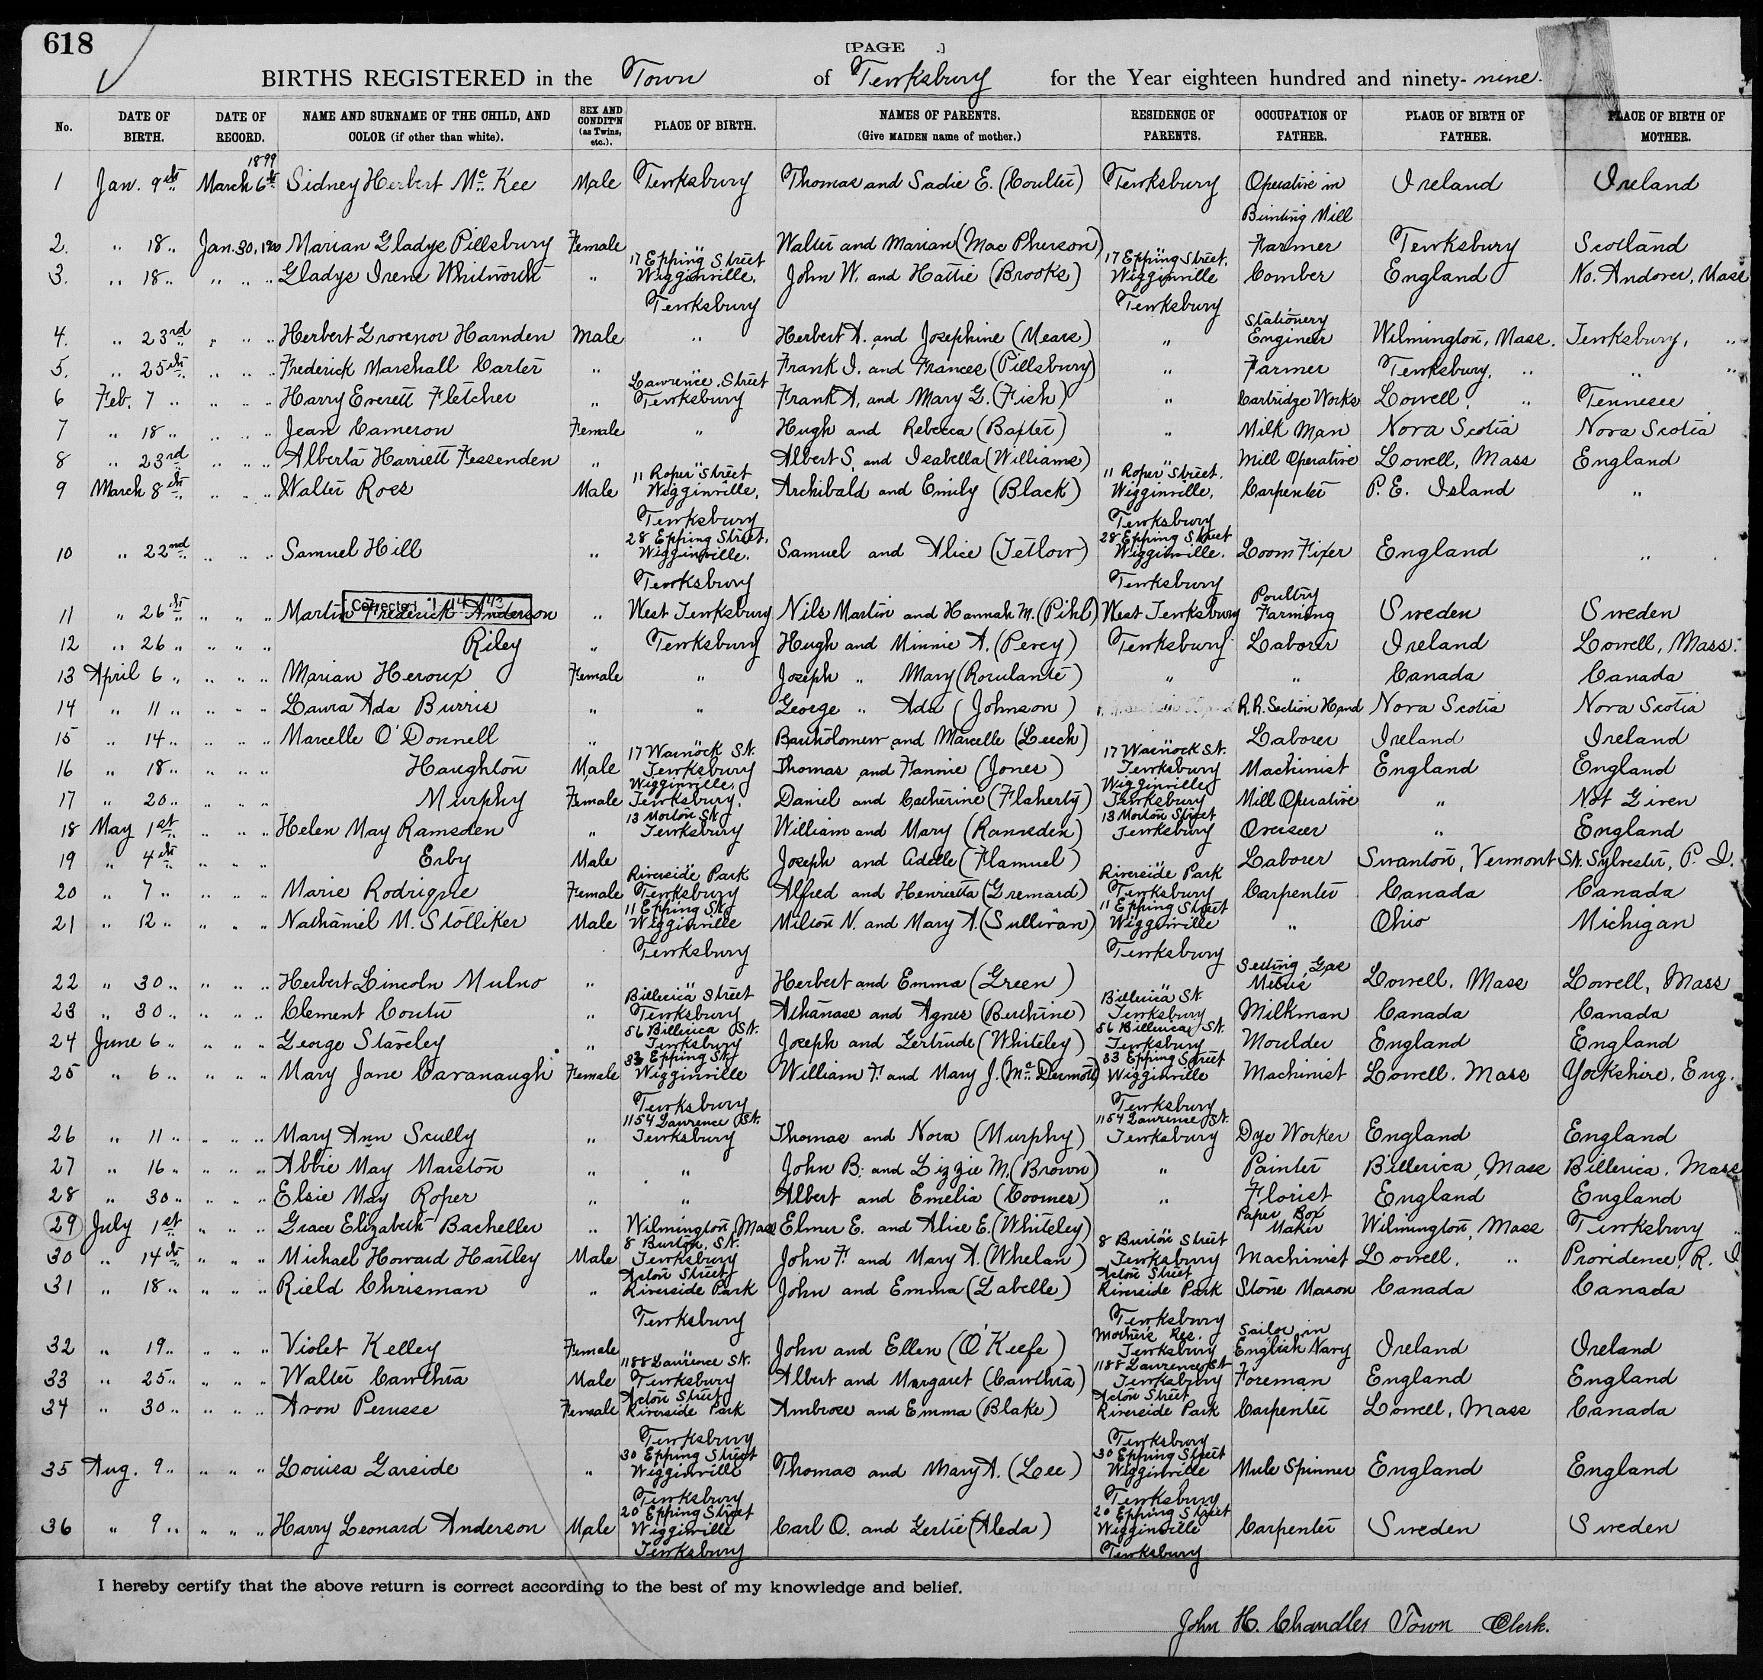 618
[PAGE .]
BIRTHS REGISTERED in the Town of Tewksbury for the Year eighteen hundred and ninety- nine.
No. DATE OF BIRTH. DATE OF RECORD. NAME AND SURNAME OF THE CHILD, AND COLOR (if other than white). SEX AND CONDIT'N (as Twins, etc.). PLACE OF BIRTH. NAMES OF PARENTS. (Give MAIDEN name of mother.) RESIDENCE OF PARENTS. OCCUPATION OF FATHER. PLACE OF BIRTH OF FATHER. PLACE OF BIRTH OF MOTHER.
1 Jan. 9th March 6th 1899 Sidney Herbert Mc Kee Male Tewksbury Thomas and Sadie E. (Coulter) Tewksbury Operative in Bunting Mill Ireland Ireland
2. " 18 " Jan. 30, 1900 Marian Gladys Pillsbury Female " Walter and Marian (Mac Pherson) " Farmer Tewksbury Scotland
3. " 18 " " " " Gladys Irene Whitworth " 17 Epping Street Wigginville, Tewksbury John W. and Hattie (Brooks) 17 Epping Street, Wigginville Tewksbury Comber England No. Andover, Mass
4. " 23rd " " " Herbert Grovenor Harnden Male " Herbert A. and Josephine (Mears) " Stationery Engineer Wilmington, Mass. Tewksbury, "
5. " 25th " " " Frederick Marshall Carter " " Frank I. and Frances (Pillsbury) " Farmer Tewksbury, " " "
6 Feb. 7 " " " " Harry Everett Fletcher " Lawrence Street Tewksbury Frank A. and Mary G. (Fish) " Cartridge Works Lowell, " Tennesee
7 " 18 " " " " Jean Cameron Female " Hugh and Rebecca (Baxter) " Milk Man Nova Scotia Nova Scotia
8 " 23rd " " " Alberta Harriett Fessenden " " Albert S. and Isabella (Williams) " Mill Operative Lowell, Mass England
9 March 8th " " " Walter Ross Male 11 Roper Street Wigginville, Tewksbury Archibald and Emily (Black) 11 Roper Street, Wigginville, Tewksbury Carpenter P. E. Island "
10 " 22nd " " " Samuel Hill " 28 Epping Street, Wigginville, Tewksbury Samuel and Alice (Tetlow) 28 Epping Street Wigginville, Tewksbury Loom Fixer England "
11 " 26th " " " Martin Frederick Anderson " West Tewksbury Nils Martin and Hannah M. (Pihl) West Tewksbury Poultry Farming Sweden Sweden
12 " 26 " " " " Riley " Tewksbury Hugh and Minnie A. (Percy) Tewksbury Laborer Ireland Lowell, Mass.
13 April 6 " " " " Marian Heroux Female " Joseph " Mary (Roculante) " " Canada Canada
14 " 11 " " " " Laura Ada Burris " " George " Ada (Johnson) " R.R. Section Hand Nova Scotia Nova Scotia
15 " 14 " " " " Marcelle O'Donnell " " Bartholomew and Marcelle (Leech) " Laborer Ireland Ireland
16 " 18 " " " " Haughton Male 17 Warnock St. Tewksbury Thomas and Fannie (Jones) 17 Warnock St. Tewksbury Machinist England England
17 " 20 " " " " Murphy Female Wigginville, Tewksbury. Daniel and Catherine (Flaherty) Wigginville Tewksbury Mill Operative " Not Given
18 May 1st " " " Helen May Ramsden " 13 Morton St. Tewksbury William and Mary (Ramsden) 13 Morton Street Tewksbury Overseer " England
19 " 4th " " " Erby Male " Joseph and Adelle (Flamuel) " Laborer Swanton, Vermont St. Sylvester, P. I.
20 " 7 " " " " Marie Rodrigue Female Riverside Park Tewksbury Alfred and Henrietta (Gremard) Riverside Park Tewksbury Carpenter Canada Canada
21 " 12 " " " " Nathaniel M. Stolliker Male 11 Epping St. Wigginville Tewksbury Milton N. and Mary A. (Sullivan) 11 Epping Street Wigginville Tewksbury " Ohio Michigan
22 " 30 " " " " Herbert Lincoln Mulno " " Herbert and Emma (Green) Setting Gas Meters Lowell, Mass Lowell, Mass
23 " 30 " " " " Clement Coutu " Billerica Street Tewksbury Athanase and Agnes (Berthine) Billerica St. Tewksbury Milkman Canada Canada
24 June 6 " " " " George Staveley " 56 Billerica St. Tewksbury Joseph and Gertrude (Whiteley) 56 Billerica St. Tewksbury Moulder England England
25 " 6 " " " " Mary Jane Cavanaugh Female 33 Epping St. Wigginville Tewksbury William F. and Mary J. (Mc Dermott) 33 Epping Street Wigginville Tewksbury Machinist Lowell, Mass Yorkshire, Eng.
26 " 11 " " " " Mary Ann Scully " 1154 Lawrence St. Tewksbury Thomas and Nora (Murphy) 1154 Lawrence St. Tewksbury Dye Worker England England
27 " 16 " " " " Abbie May Marston " " John B. and Lizzie M. (Brown) " Painter Billerica, Mass Billerica, Mass
28 " 30 " " " " Elsie May Roper " " Albert and Emelia (Coomes) " Florist England England
29 July 1st " " " Grace Elizabeth Bacheller " Wilmington, Mass Elmer E. and Alice E. (Whiteley) Paper Box Maker Wilmington, Mass Tewksbury "
30 " 14th " " " Michael Howard Hartley Male 8 Burton St. Tewksbury John F. and Mary A. (Whelan) 8 Burton Street Tewksbury Machinist Lowell, " Providence, R. I
31 " 18 " " " " Rield Chrisman " Acton Street Riverside Park Tewksbury John and Emma (Labelle) Acton Street Riverside Park Tewksbury Stone Mason Canada Canada
32 " 19 " " " " Violet Kelley Female " John and Ellen (O'Keefe) Mothers Res. Tewksbury Sailor in English Navy Ireland Ireland
33 " 25 " " " " Walter Cawthra Male 1188 Lawrence St. Tewksbury Albert and Margaret (Cawthra) 1188 Lawrence St Tewksbury Foreman England England
34 " 30 " " " " Aron Perusse Female Acton Street Riverside Park Tewksbury Ambrose and Emma (Blake) Acton Street Riverside Park Tewksbury Carpenter Lowell, Mass Canada
35 Aug. 9 " " " " Louisa Garside " 30 Epping Street Wigginville Tewksbury Thomas and Mary A. (Lee) 30 Epping Street Wigginville Tewksbury Mule Spinner England England
36 " 9 " " " " Harry Leonard Anderson Male 20 Epping Street Wigginville Tewksbury Carl O. and Gertie (Aleda) 20 Epping Street Wigginville Tewksbury Carpenter Sweden Sweden
I hereby certify that the above return is correct according to the best of my knowledge and belief.
John H. Chandler Town Clerk.